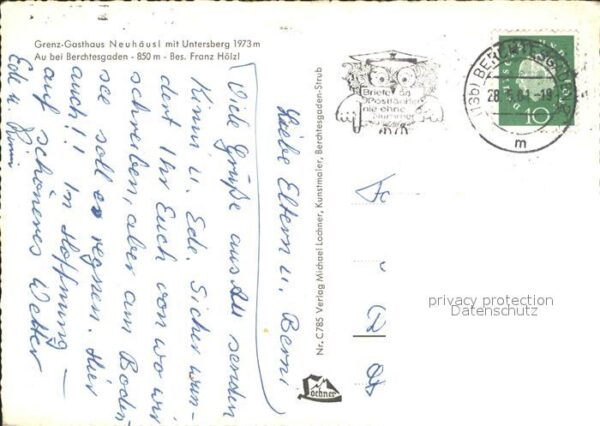 Grenz-Gasthaus Neuhäusl mit Untersberg 1973 m
Au bei Berchtesgaden - 850 m - Bes. Franz Hölzl
Liebe Eltern u. Berni
Viele Grüße aus Au senden
Kinni u. Ede. Sicher wun-
dert Ihr Euch von wo wir
schreiben, aber am Boden-
see soll es regnen. Hier
auch!! In Hoffnung –
auf schöneres Wetter
Ede u.
Nr. C785 Verlag Michael Lochner, Kunstmaler, Berchtesgaden-Strub
Lochner
Briefe an
Postfächer
nie ohne
Nummer
(13b) BERCHTESGADEN
-18
m
10
privacy protection
Datenschutz